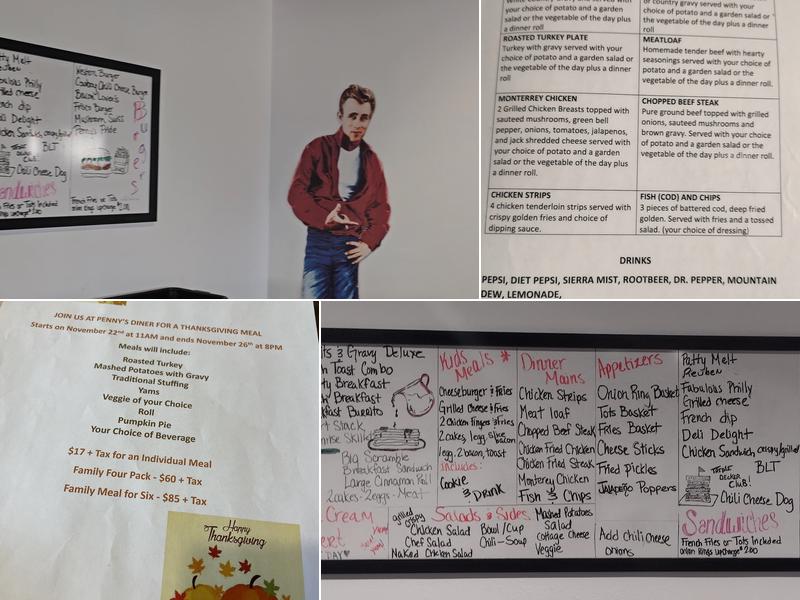 Patty Melt
Reuben
Fabulous Philly
Grilled cheese
French dip
Deli Delight
BLT
Chili Cheese Dog
Sandwiches
Fries or Tots Included
Western Burger
Cowboy Chili Cheese Burger
Bacon Lovers
Frisco Burger
Mushroom Swiss
Penny's Pride
Burgers
French Fries or Tots
onion rings upcharge $2.00
your choice of potato and a garden
salad or the vegetable of the day plus
a dinner roll
or country gravy served with your
choice of potato and a garden salad or
the vegetable of the day plus a dinner
roll
ROASTED TURKEY PLATE
Turkey with gravy served with your
choice of potato and a garden salad or
the vegetable of the day plus a dinner
roll
MEATLOAF
Homemade tender beef with hearty
seasonings served with your choice of
potato and a garden salad or the
vegetable of the day plus a dinner roll.
MONTERREY CHICKEN
2 Grilled Chicken Breasts topped with
sauteed mushrooms, green bell
pepper, onions, tomatoes, jalapenos,
and jack shredded cheese served with
your choice of potato and a garden
salad or the vegetable of the day plus
a dinner roll.
CHOPPED BEEF STEAK
Pure ground beef topped with grilled
onions, sauteed mushrooms and
brown gravy. Served with your choice
of potato and a garden salad or the
vegetable of the day plus a dinner roll.
CHICKEN STRIPS
4 chicken tenderloin strips served with
crispy golden fries and choice of
dipping sauce.
FISH (COD) AND CHIPS
3 pieces of battered cod, deep fried
golden. Served with fries and a tossed
salad. (your choice of dressing)
DRINKS
PEPSI, DIET PEPSI, SIERRA MIST, ROOTBEER, DR. PEPPER, MOUNTAIN
DEW, LEMONADE,
JOIN US AT PENNY'S DINER FOR A THANKSGIVING MEAL
Starts on November 22nd at 11AM and ends November 26th at 8PM
Meals will include:
Roasted Turkey
Mashed Potatoes with Gravy
Traditional Stuffing
Yams
Veggie of your Choice
Roll
Pumpkin Pie
Your Choice of Beverage
$17 + Tax for an Individual Meal
Family Four Pack - $60 + Tax
Family Meal for Six - $85 + Tax
Happy
Thanksgiving
ts & Gravy Deluxe
h Toast Combo
ty Breakfast
h Breakfast
kfast Burrito
t Stack
Big Scramble
Breakfast Sandwich
Large Cinnamon Roll
2 cakes-2eggs-Meat
Cream
Kids
Meals
Cheeseburger & Fries
Grilled Cheese & Fries
2 Chicken fingers & Fries
2 cakes, 1 egg, slice bacon
1 egg, 2 bacon, toast
includes:
Cookie
& Drink
Dinner
Mains
Chicken Strips
Meat loaf
Chopped Beef Steak
Chicken Fried Chicken
Chicken Fried Steak
Monterey Chicken
Fish & Chips
Appetizers
Onion Ring Basket
Tots Basket
Fries Basket
Cheese Sticks
Fried Pickles
Jalapeño Poppers
Add chili cheese
onions
Salads & Sides
grilled
crispy
Chicken Salad
Chef Salad
Naked Chicken Salad
Bowl/Cup
Chili-Soup
Mashed Potatoes
Salad
Cottage Cheese
Veggie
Patty Melt
Reuben
Fabulous Philly
Grilled cheese
French dip
Deli Delight
Chicken Sandwich, crispy/grilled
TRIPLE
DECKER
CLUB!
BLT
Chili Cheese Dog
Sandwiches
French Fries or Tots Included
onion rings upcharge $2.00